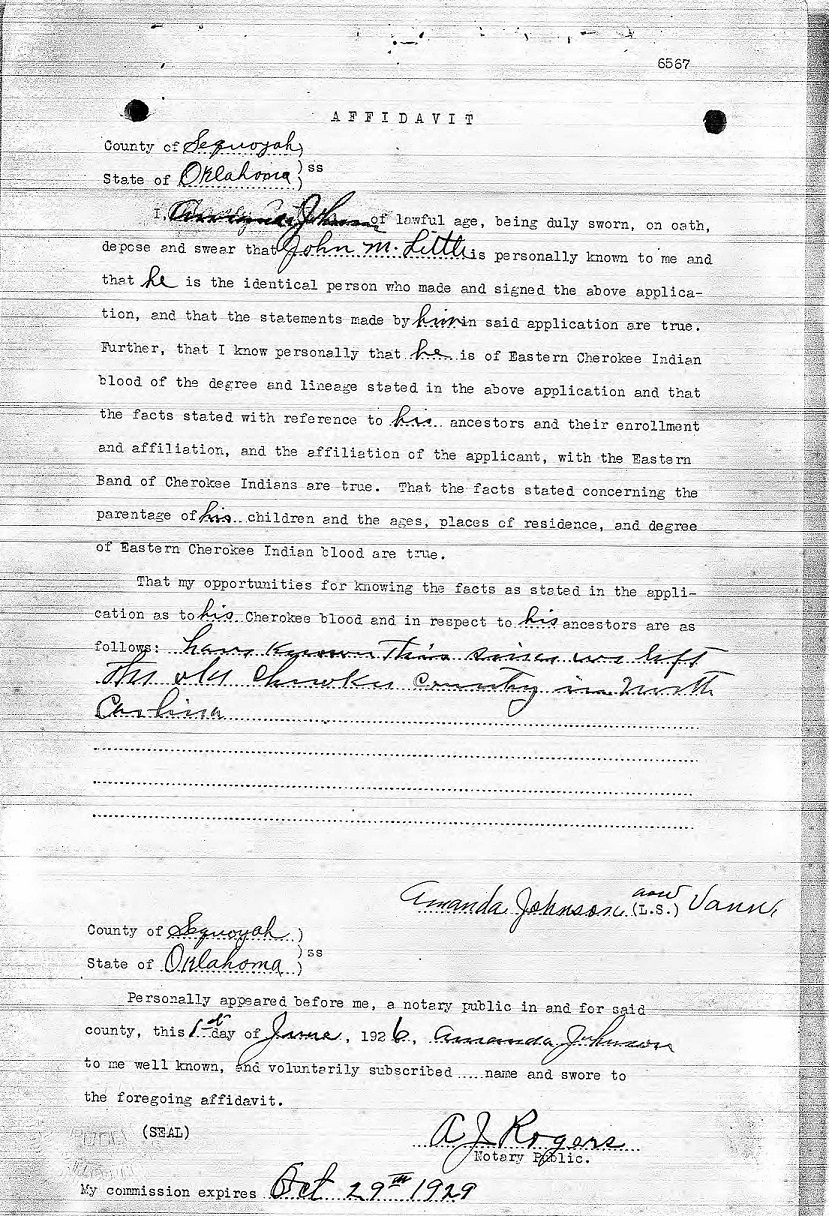 6567
AFFIDAVIT
County of Sequoyah )
State of Oklahoma ) ss
I, Amanda Johnson of lawful age, being duly sworn, on oath,
depose and swear that John M. Little is personally known to me and
that he is the identical person who made and signed the above applica-
tion, and that the statements made by him in said application are true.
Further, that I know personally that he is of Eastern Cherokee Indian
blood of the degree and lineage stated in the above application and that
the facts stated with reference to his ancestors and their enrollment
and affiliation, and the affiliation of the applicant, with the Eastern
Band of Cherokee Indians are true. That the facts stated concerning the
parentage of his children and the ages, places of residence, and degree
of Eastern Cherokee Indian blood are true.
That my opportunities for knowing the facts as stated in the appli-
cation as to his Cherokee blood and in respect to his ancestors are as
follows: have known this since we left
the old Cherokee Country in North
Carolina
Amanda Johnson now (L.S.) Vann
County of Sequoyah )
State of Oklahoma ) ss
Personally appeared before me, a notary public in and for said
county, this 1st day of June, 1926, Amanda Johnson
to me well known, and voluntarily subscribed .....name and swore to
the foregoing affidavit.
(SEAL)
A J Rogers
Notary Public.
My commission expires Oct 29th 1929